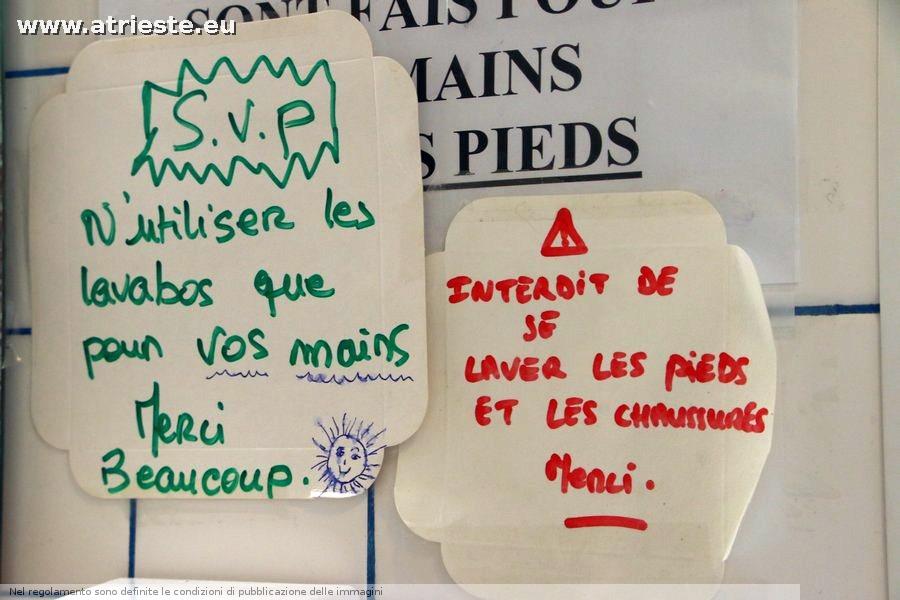 www.atrieste.eu
SONT FAIS POUR
MAINS
S PIEDS
S.V.P
N'utiliser les
lavabos que
pour vos mains
Merci
Beaucoup.
INTERDIT DE
SE
LAVER LES PIEDS
ET LES CHAUSSURES
Merci.
Nel regolamento sono definite le condizioni di pubblicazione delle immagini